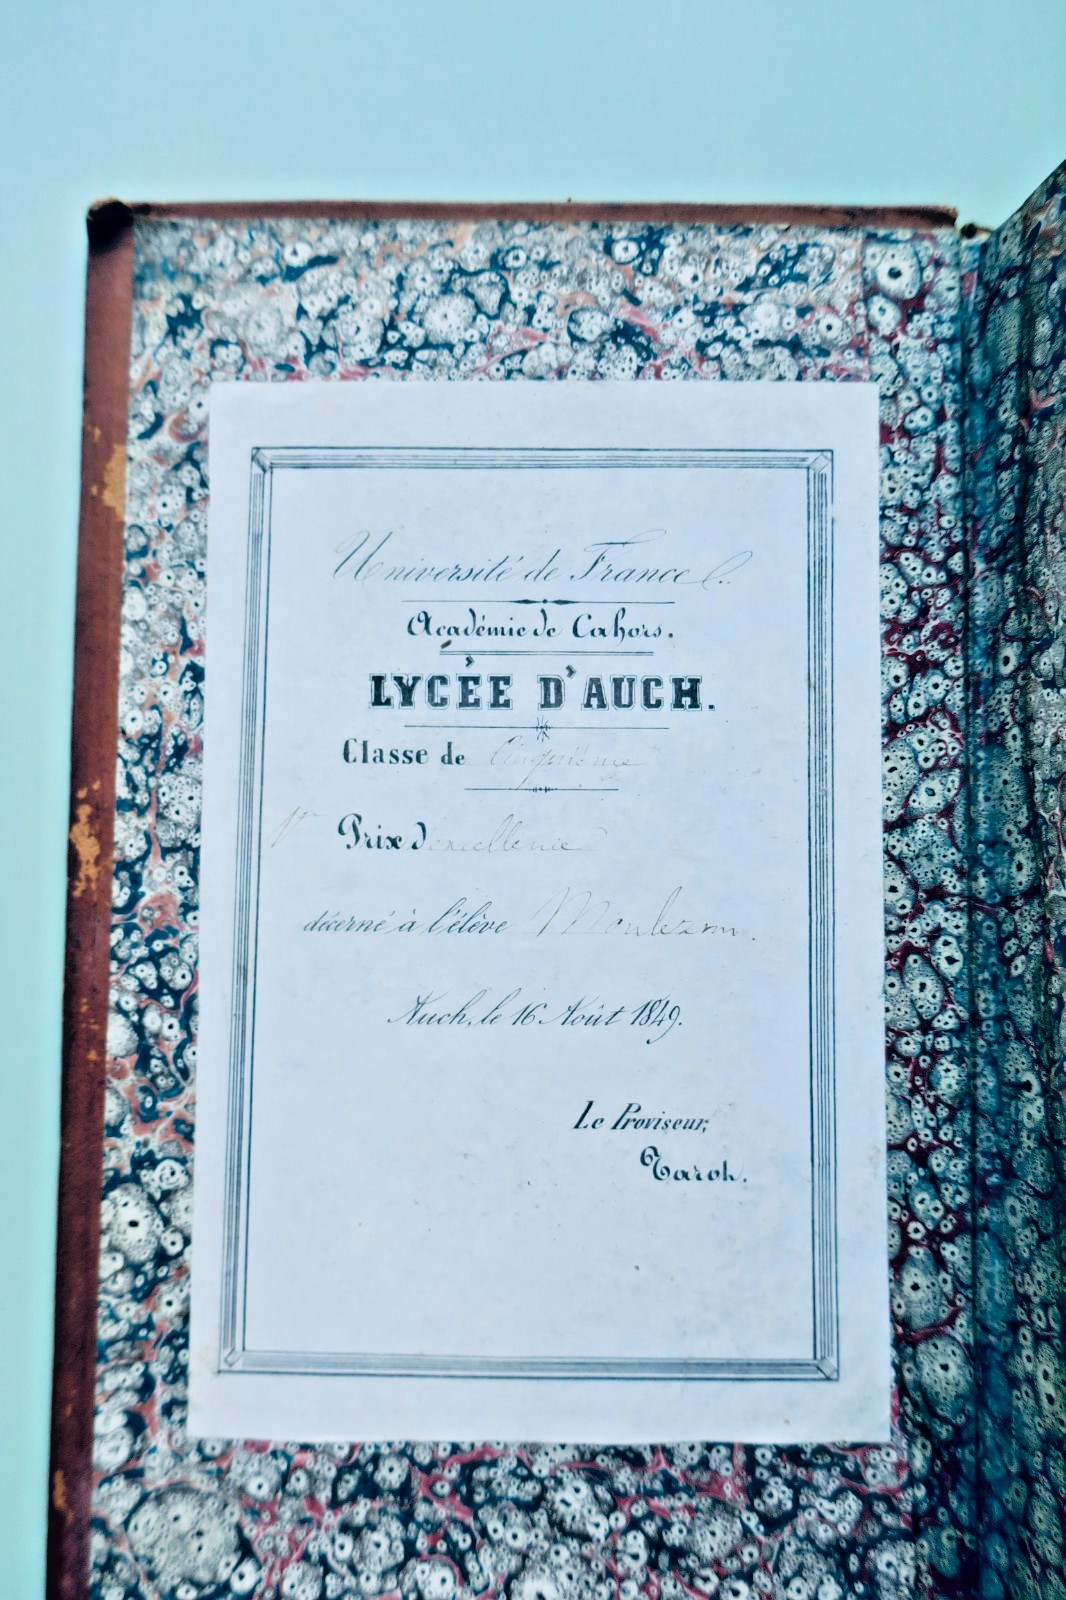 Université de France
Académie de Cahors.
LYCÈE D'AUCH.
Classe de Cinquième
1er Prix d'excellence
décerné à l'élève Moulezun.
Auch, le 16 Août 1849.
Le Proviseur,